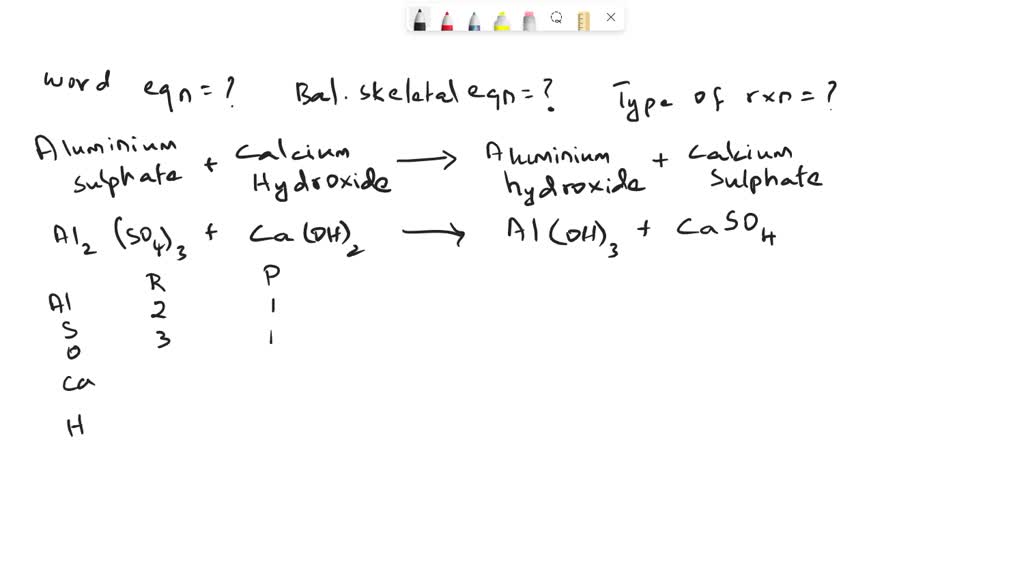 word eqn = ? Bal. skeletal eqn = ? Type of rxn = ?
Aluminium sulphate + Calcium Hydroxide → Aluminium hydroxide + Calcium Sulphate
Al₂(SO₄)₃ + Ca(OH)₂ → Al(OH)₃ + CaSO₄
R P
Al 2 1
S 3 1
O
Ca
H